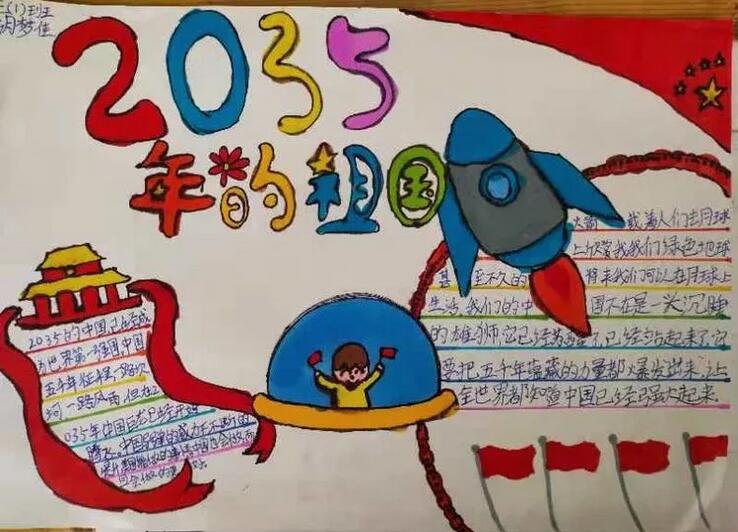 (1)班
梦佳
2035
年的祖国
2035的中国已经成
为世界第一强国,中国
五千年征程,路次
河一路风雨,但在2
035年中国
火箭 载着人们去月球
上欣赏我们绿色地球
甚至不久的 将来我们可以在月球上
生活,我们的中 国不在是一头沉睡
的雄狮,它已经苏醒了,已经站起来了,它
要把五千年蕴藏的力量都爆发出来,让
全世界都知道中国已经强大起来.